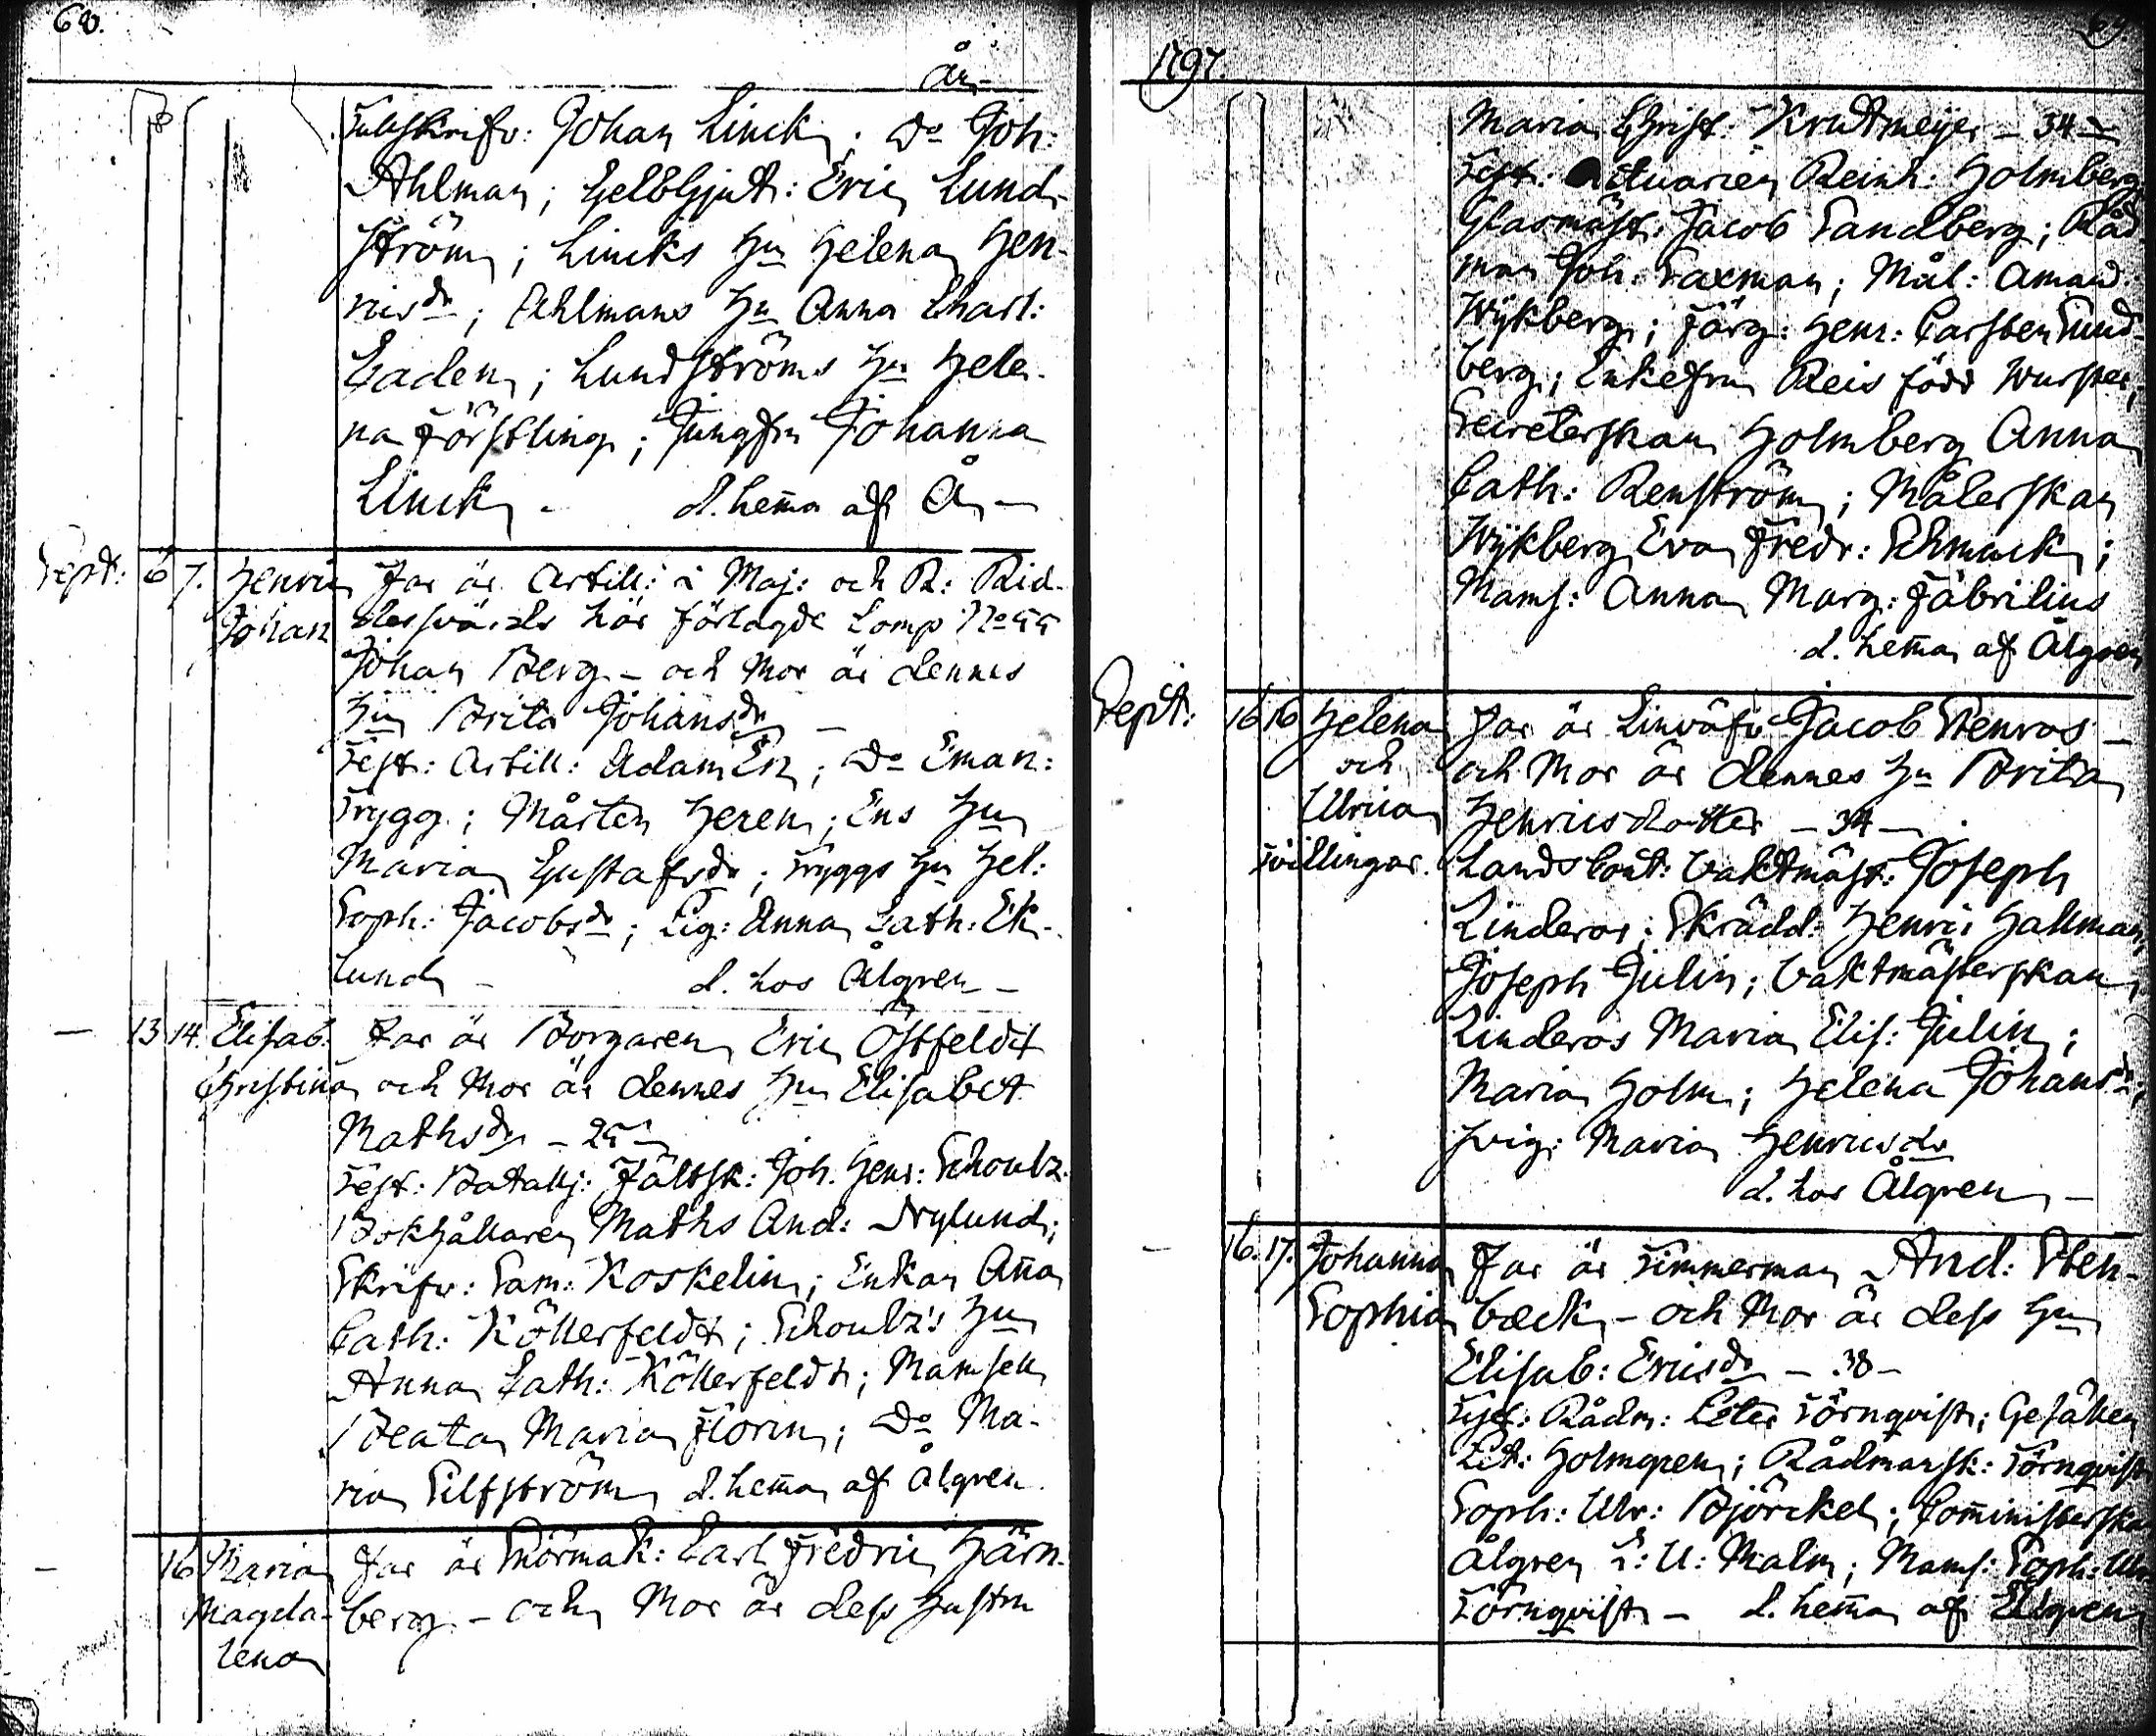 68.
År
Tullskrifv: Johan Linck; Do Joh:
Ahlman; Gelbgjut: Eric Lund-
ström; Lincks Hu Helena Hen-
ricsdr; Ahlmans Hu Anna Charl:
Gaden; Lundströms Hu Hele-
na Förstling; Jungfru Johanna
Linck - d. hem̄a af Å
Sept: 6 7. Henric Far är Artill: i Maj: och R: Rid-
Johan dersvärds här förlagde Comp No
Johan Berg - och Mor är dennes
Hu Brita Johansdr
Test: Artill: Adam En; Do Eman:
Trygg; Mårten Heren; Ens Hu
Maria Gustafsdr; Tryggs Hu Hel:
Soph: Jacobsdr; Pig: Anna Cath: Ek-
lund - d. hos Ålgren -
- 13 14. Elisab. Far är Borgaren Eric Östfeldt
Christina och Mor är dennes Hu Elisabet
Mathsdr - 25 -
Test: Batalj: Fältsk: Joh. Henr: Schoultz
Bokhållaren Maths And: Nylund;
Skrifv: Sam: Koskelin; Enkan An̄a
Cath: Köllerfeldt; Schoultz's Hu
Anna Cath: Köllerfeldt; Mamsell
Beata Maria Florin; Do Ma-
ria Silfström d. hem̄a af Ålgren
- 16 Maria Far är Snörmak: Carl Fredric Härn-
Magda- berg - och Mor är dess Hustru
lena
69
1797.
Maria Christ: Krutmeijer - 34 -
Test: Actuarien Reinh: Holmberg
Glasmäst: Jacob Sandberg; Råd-
man Joh: Saxman; Mål: Amand.
Wijkberg; Färg: Henr: Carsten Sund-
berg; Enkefru Reis född Wurster;
Secreterskan Holmberg Anna
Cath: Renström; Målerskan
Wijkberg Eva Fredr: Schmack;
Mams: Anna Marg: Fabrilius
d. hem̄a af Ålgren
Sept: 16 16 Helena Far är Linväfv Jacob Stenros -
och och Mor är dennes Hu Brita
Ulrica Henricsdotter - 34 -
tvillingar. Lands Cont: Vaktmäst: Joseph
Linderos; Skrädd: Henric Hallman;
Joseph Julin; Vaktmästerskan
Linderos Maria Elis: Julin;
Maria Holm; Helena Johansdr;
pig: Maria Henricsdr
d. hos Ålgren -
- 16. 17. Johanna Far är Timmerman And: Sten-
Sophia back - och Mor är dess Hu
Elisab: Ericsdr - 38 -
Test: Rådm: Peter Törnqvist; Gesällen
Pet: Holmgren; Rådmansk: Törnqvist
Soph: Ulr: Björckel; Com̄inisterskan
Ålgren L: U: Malm; Mams: Soph: Ulr
Törnqvist - d. hem̄a af Ålgren